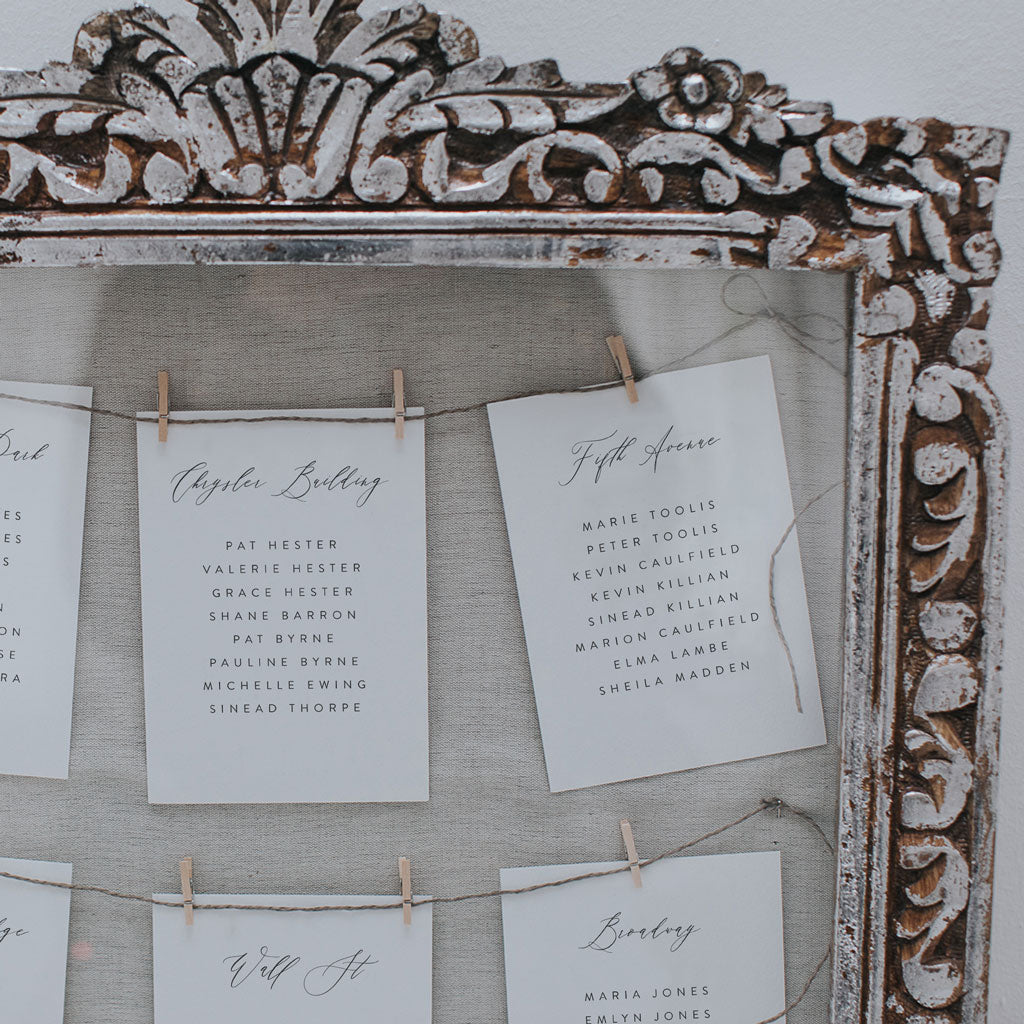 Chrysler Building
PAT HESTER
VALERIE HESTER
GRACE HESTER
SHANE BARRON
PAT BYRNE
PAULINE BYRNE
MICHELLE EWING
SINEAD THORPE
Fifth Avenue
MARIE TOOLIS
PETER TOOLIS
KEVIN CAULFIELD
KEVIN KILLIAN
SINEAD KILLIAN
MARION CAULFIELD
ELMA LAMBE
SHEILA MADDEN
Wall St
Broadway
MARIA JONES
EMLYN JONES